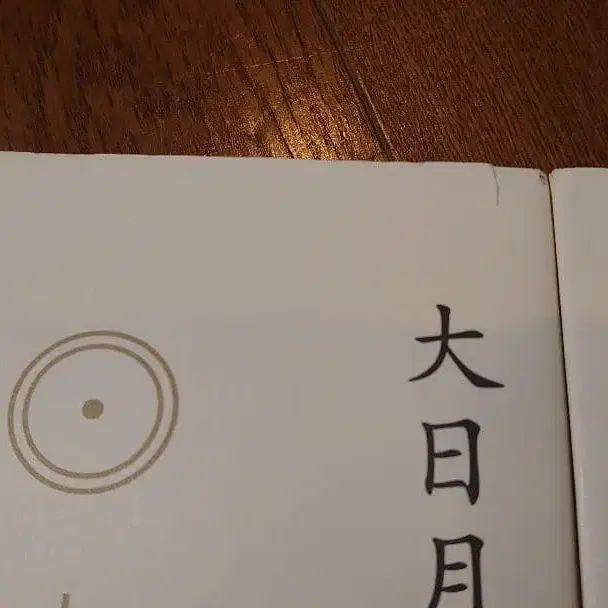 大日月